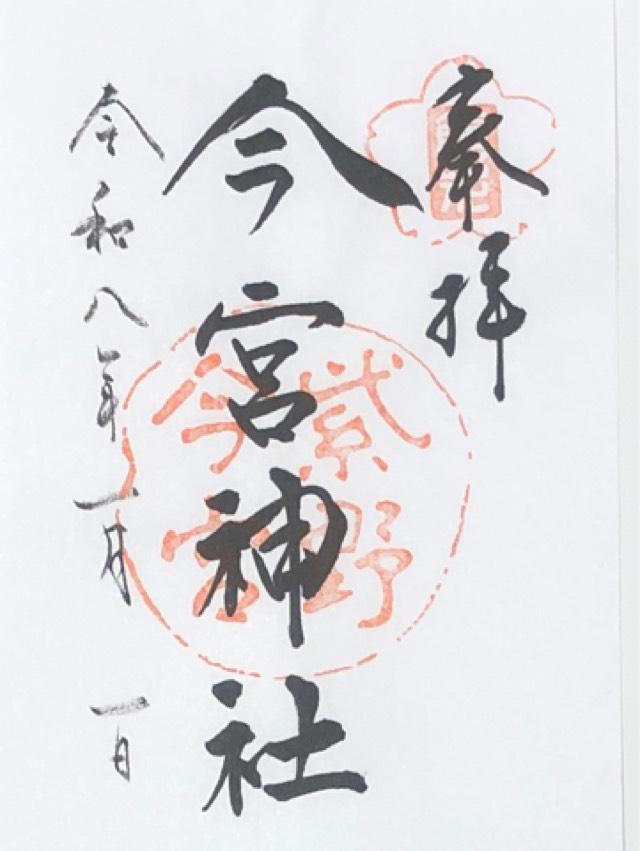 奉拝
今宮神社
紫野
今宮
令和八年一月一日